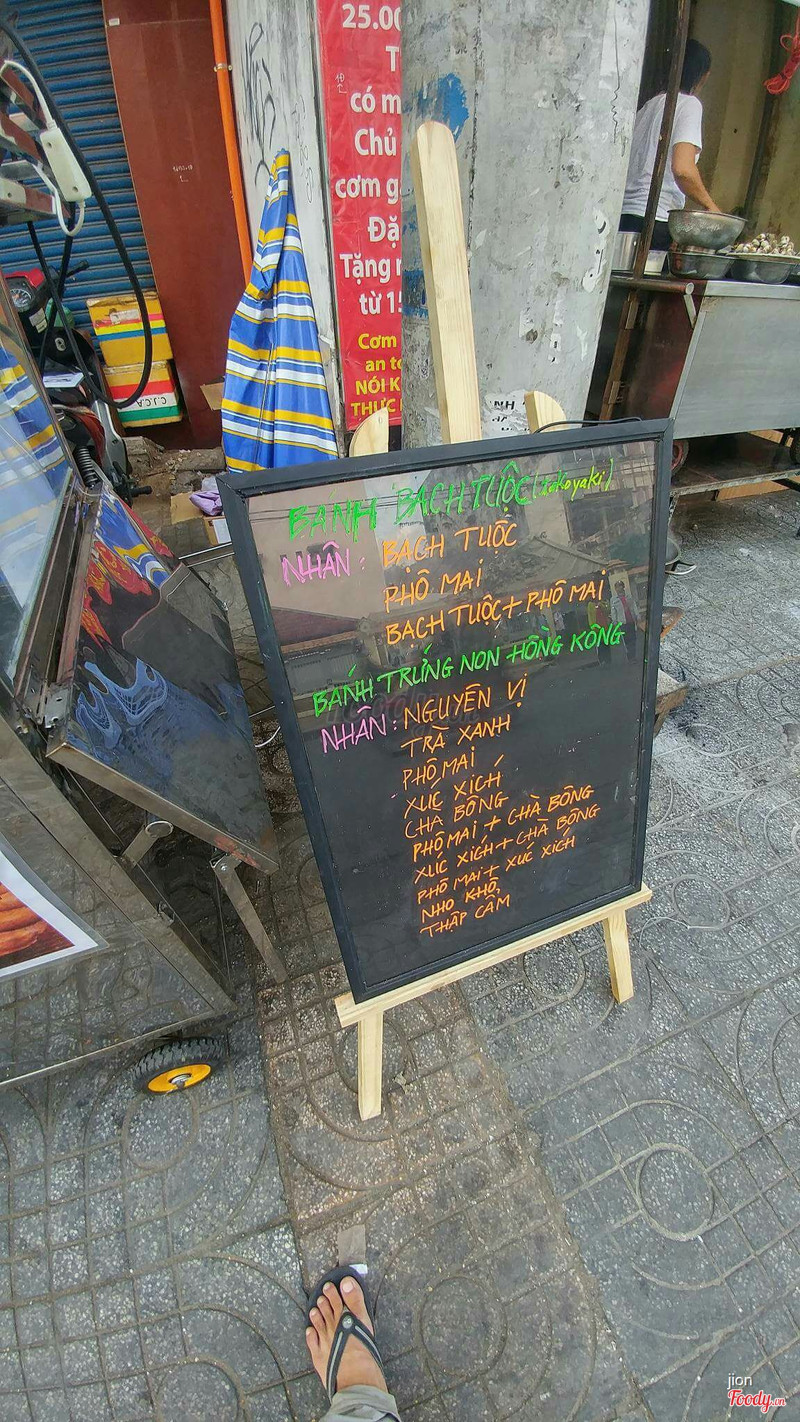 25.00
T
có m
Chủ
cơm g
Đặ
Tặng
từ 1
Cơm
an to
NÓI K
THỰC
C.J.C.A
BÁNH BẠCH TUỘC (takoyaki)
NHÂN: BẠCH TUỘC
PHÔ MAI
BẠCH TUỘC + PHÔ MAI
BÁNH TRỨNG NON HỒNG KÔNG
NHÂN: NGUYÊN VỊ
TRÀ XANH
PHÔ MAI
XÚC XÍCH
CHÀ BÔNG
PHÔ MAI + CHÀ BÔNG
XÚC XÍCH + CHÀ BÔNG
PHÔ MAI + XÚC XÍCH
NHO KHÔ
THẬP CẨM
jion
Foody.vn